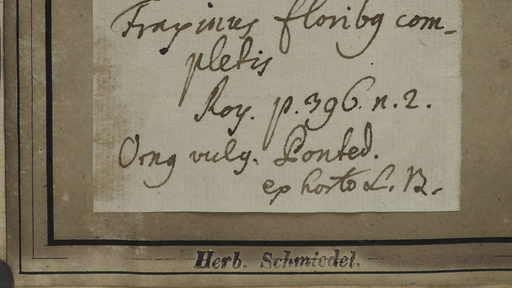 Fraxinus floribq com-
pletis
Roy. p. 396. n. 2.
Orng vulg. Ponted.
ex horto L. B.
Herb. Schmiedel.